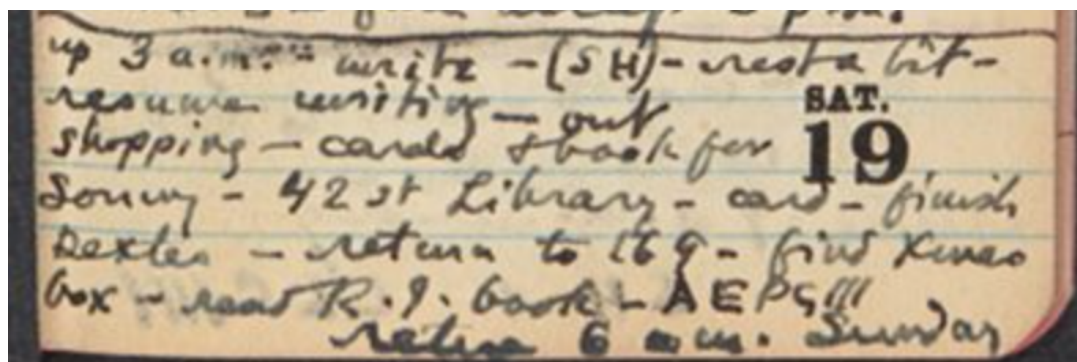 up 3 a.m. - write - (SH) - rest a bit -
resume writing - out
SAT.
19
shopping - cards & book for
Sonny - 42 st Library - card - finish
Dexter - return to 169 - find Xmas
box - read R.I. book - A E P G !!!
retire 6 a.m. Sunday